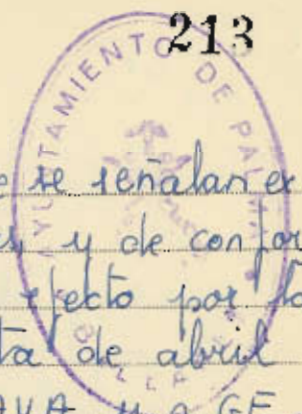 213
AYUNTAMIENTO DE PAL
e se señalan e
s, y de confor
efecto por la
ta de abril
AVA y a GE